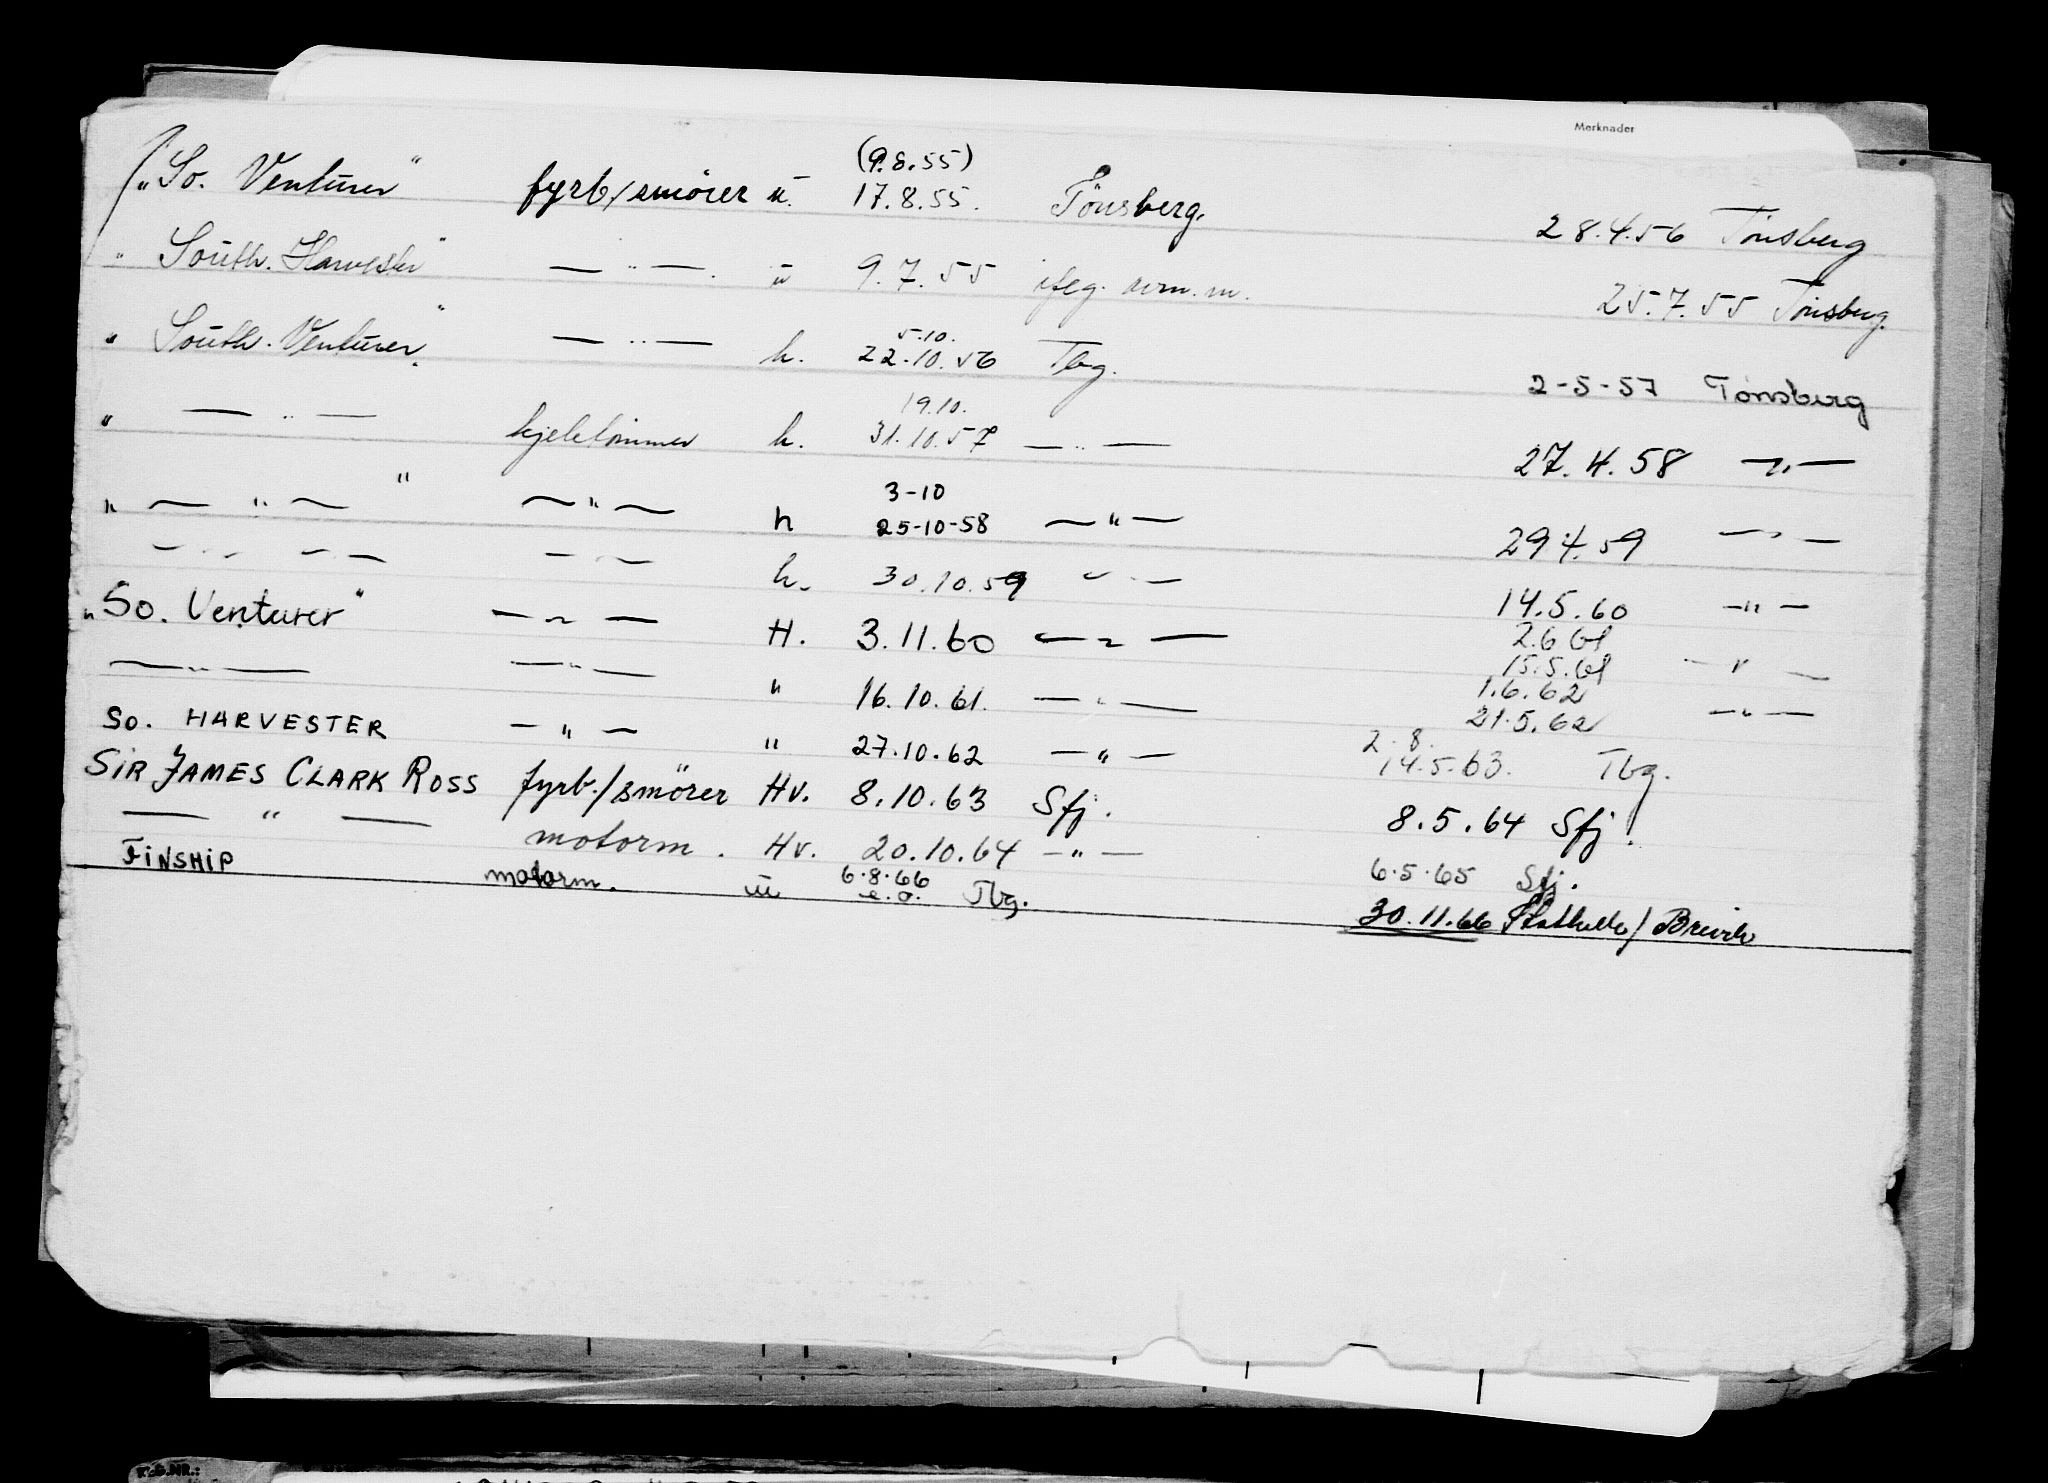 Merknader
(9.8.55)
("So. Venturer" fyrb/smörer u. 17.8.55. Tönsberg. 28.4.56 Tönsberg
" South. Harvester" — " — . u 9.7.55 ifлg. 25.7.55 Tönsberg.
5.10.
" South. Venturer." — " — h. 22.10.56 Tbg. 2-5-57 Tönsberg
19.10.
" — " — kjeletömmer h. 31.10.57 — " — 27.4.58 — " —
3-10
" — " — " — " — h 25-10-58 — " — 29.4.59 — " —
— " — " — — " — h. 30.10.59 — " — 14.5.60 — " —
2.6.61
"So. Venturer" — " — H. 3.11.60 — " — 15.5.61 — " —
1.6.62
— " — — " — " 16.10.61. — " — 21.5.62 — " —
2.8.
So. HARVESTER — " — " 27.10.62 — " — 14.5.63. Tbg.
SIR JAMES CLARK ROSS fyrb./smörer Hv. 8.10.63 Sfj. 8.5.64 Sfj.
— " — motorm. Hv. 20.10.64 — " — 6.5.65 Sfj.
6.8.66
FINSHIP motorm. u e.o. Tbg. 30.11.66 Stathelle/Brevik